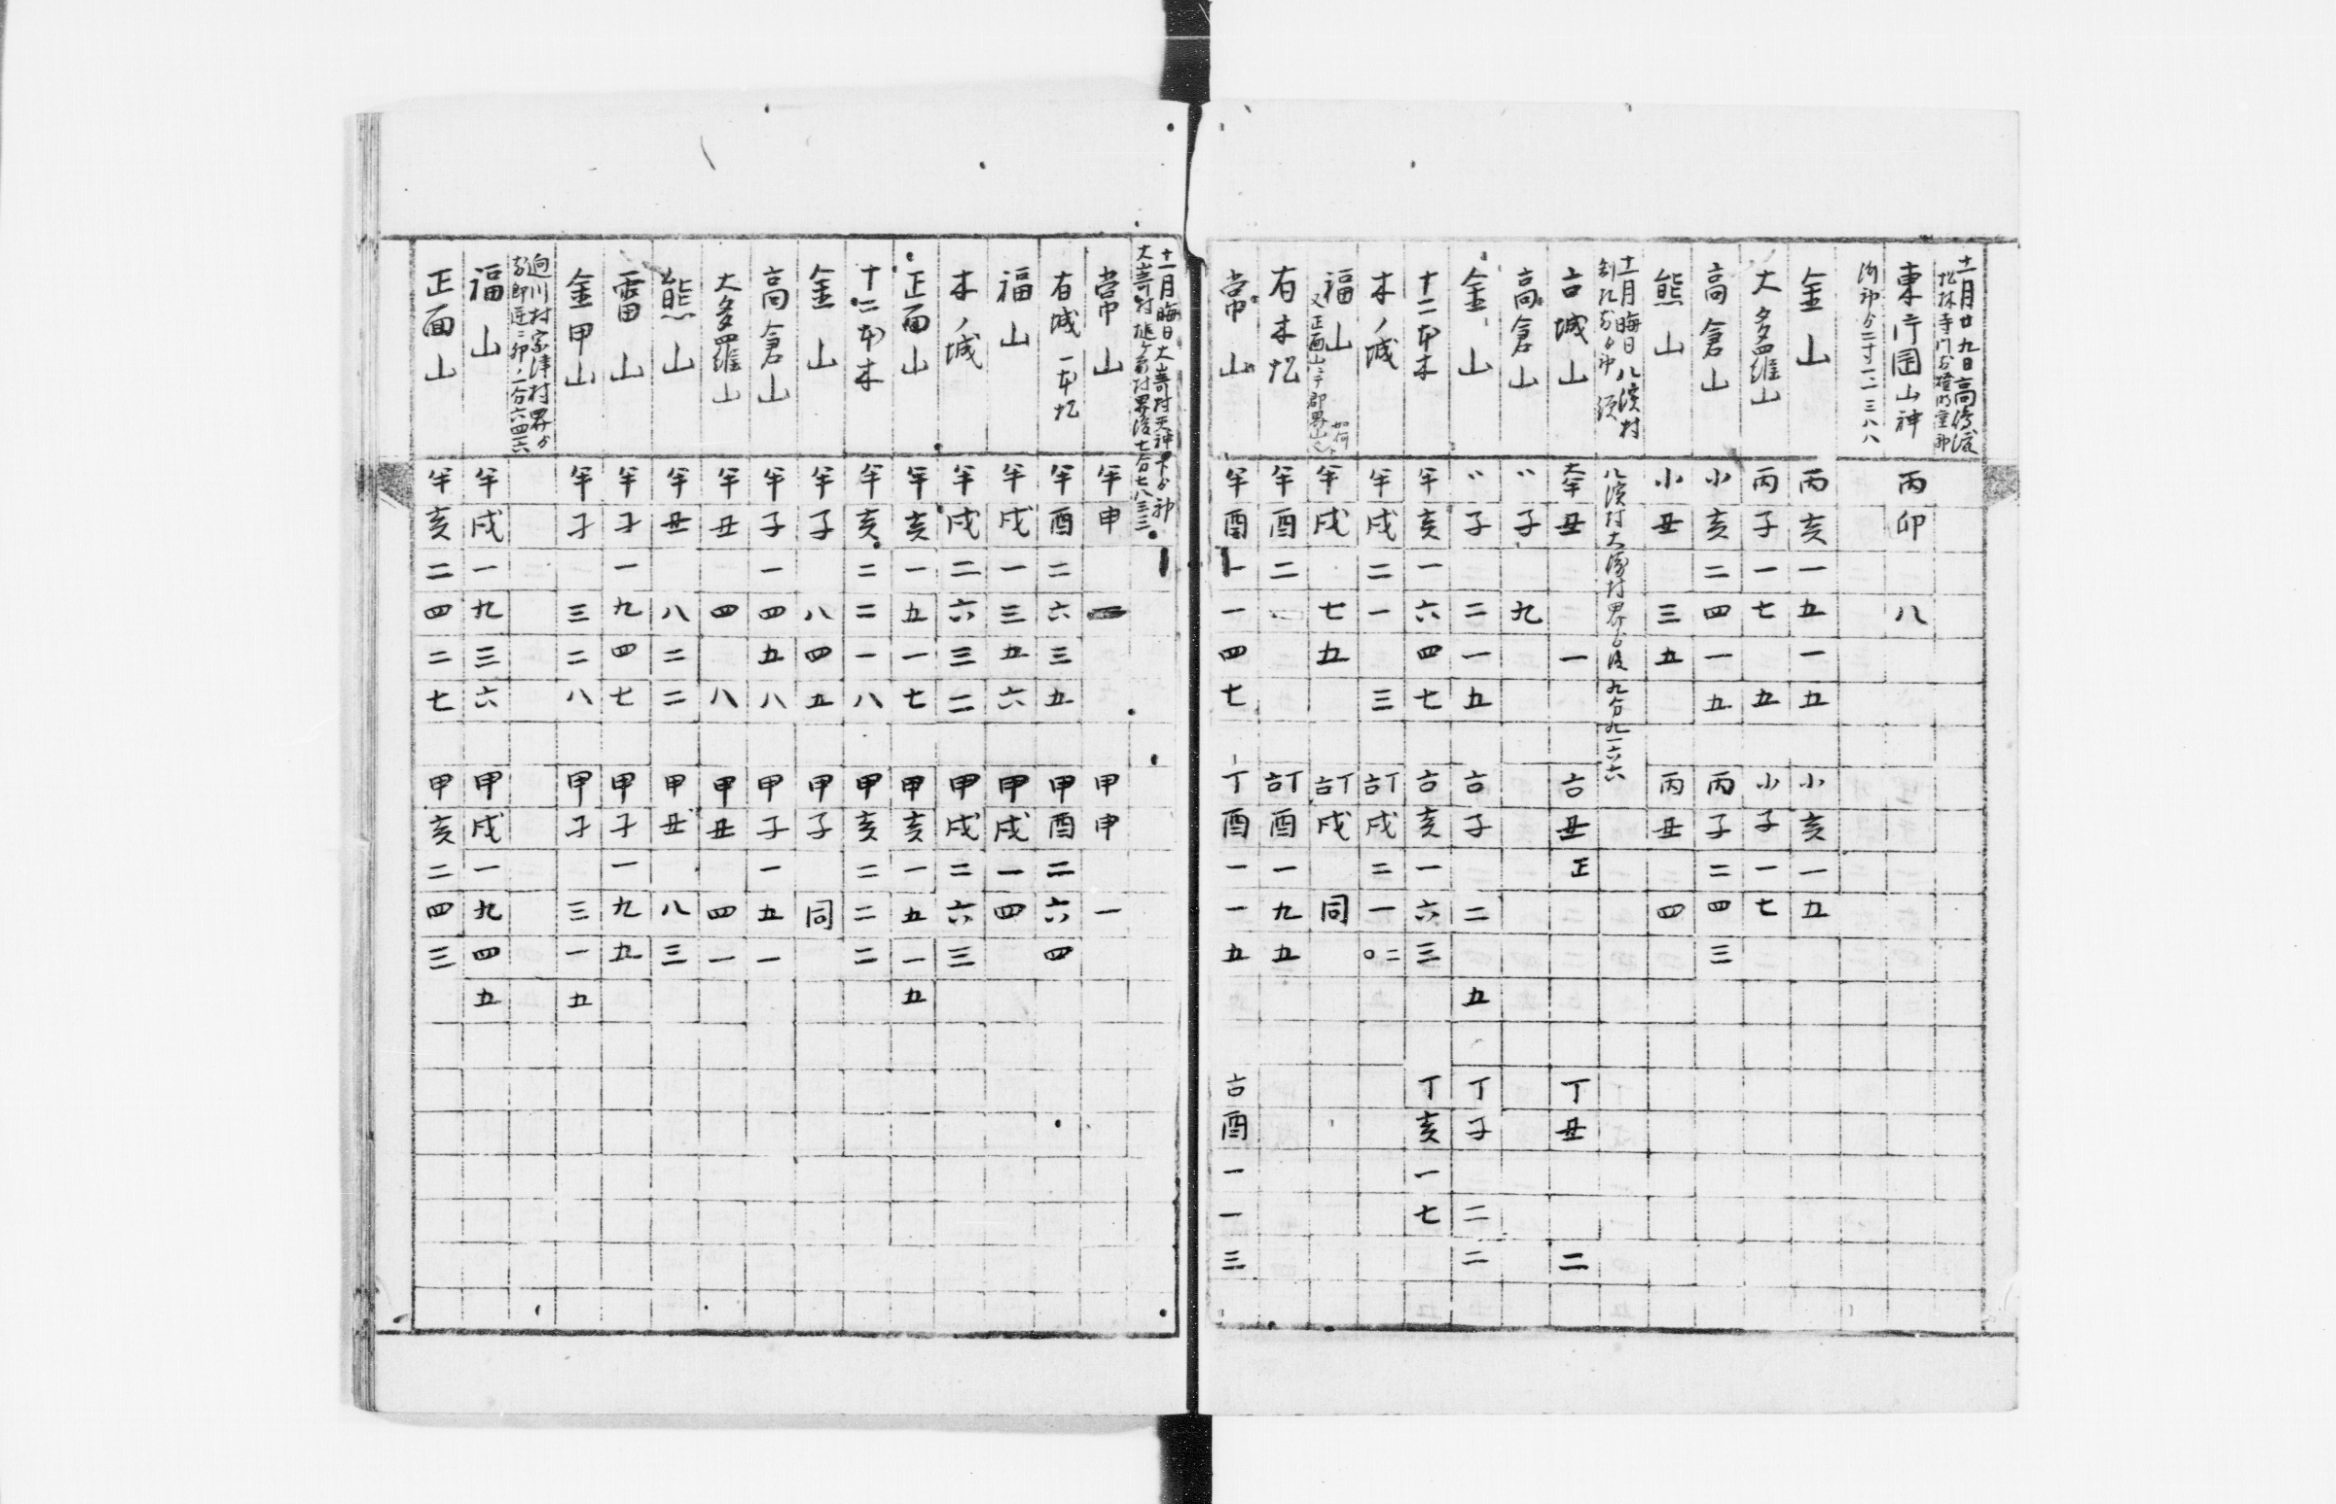 十一月廿九日高濱渡
松林寺門前
東片岡山神 丙卯 八
金山 丙亥一五一五 小亥一五
大多羅山 丙子一七 五 小子一七
高倉山 小亥二四一五 丙子二四三
熊山 小丑 三五 丙丑 四
十一月晦日八濱村
八濱村大藪村界ゟ 九分九一六六
古城山 大半丑 一 古丑正 丁丑 二
高倉山 〃子 九
金山 〃子 二一五 古子 二 五 丁子 二二
十二本木 半亥一六四七 古亥一六三 丁亥一七
木ノ城 半戌二一 三 訂戌二一〇二
福山 半戌 七五 訂戌 同
又正面山
如何
有木𡉏 半酉二 訂酉一九五
常山 半酉一一四七 丁酉一一五 古酉一一三
十一月晦日大嵜村天神下ゟ初
大嵜村 村界迄七分七八三三
常山 半申 甲申 一
有城一本𡉏 半酉二六三五 甲酉二六四
福山 半戌一三五六 甲戌一四
木ノ城 半戌二六三二 甲戌二六三
正面山 半亥一五一七 甲亥一五一五
十二本木 半亥二二一八 甲亥二二二
金山 半子 八四五 甲子 同
高倉山 半子一四五八 甲子一五一
大多羅山 半丑 四 八 甲丑 四一
熊山 半丑 八二二 甲丑 八三
雷山 半子一九四七 甲子一九五
金甲山 半子 三二八 甲子 三一五
迫川村宗津村界ゟ
初 一分六四六
福山 半戌一九三六 甲戌一九四五
正面山 半亥二四二七 甲亥二四三